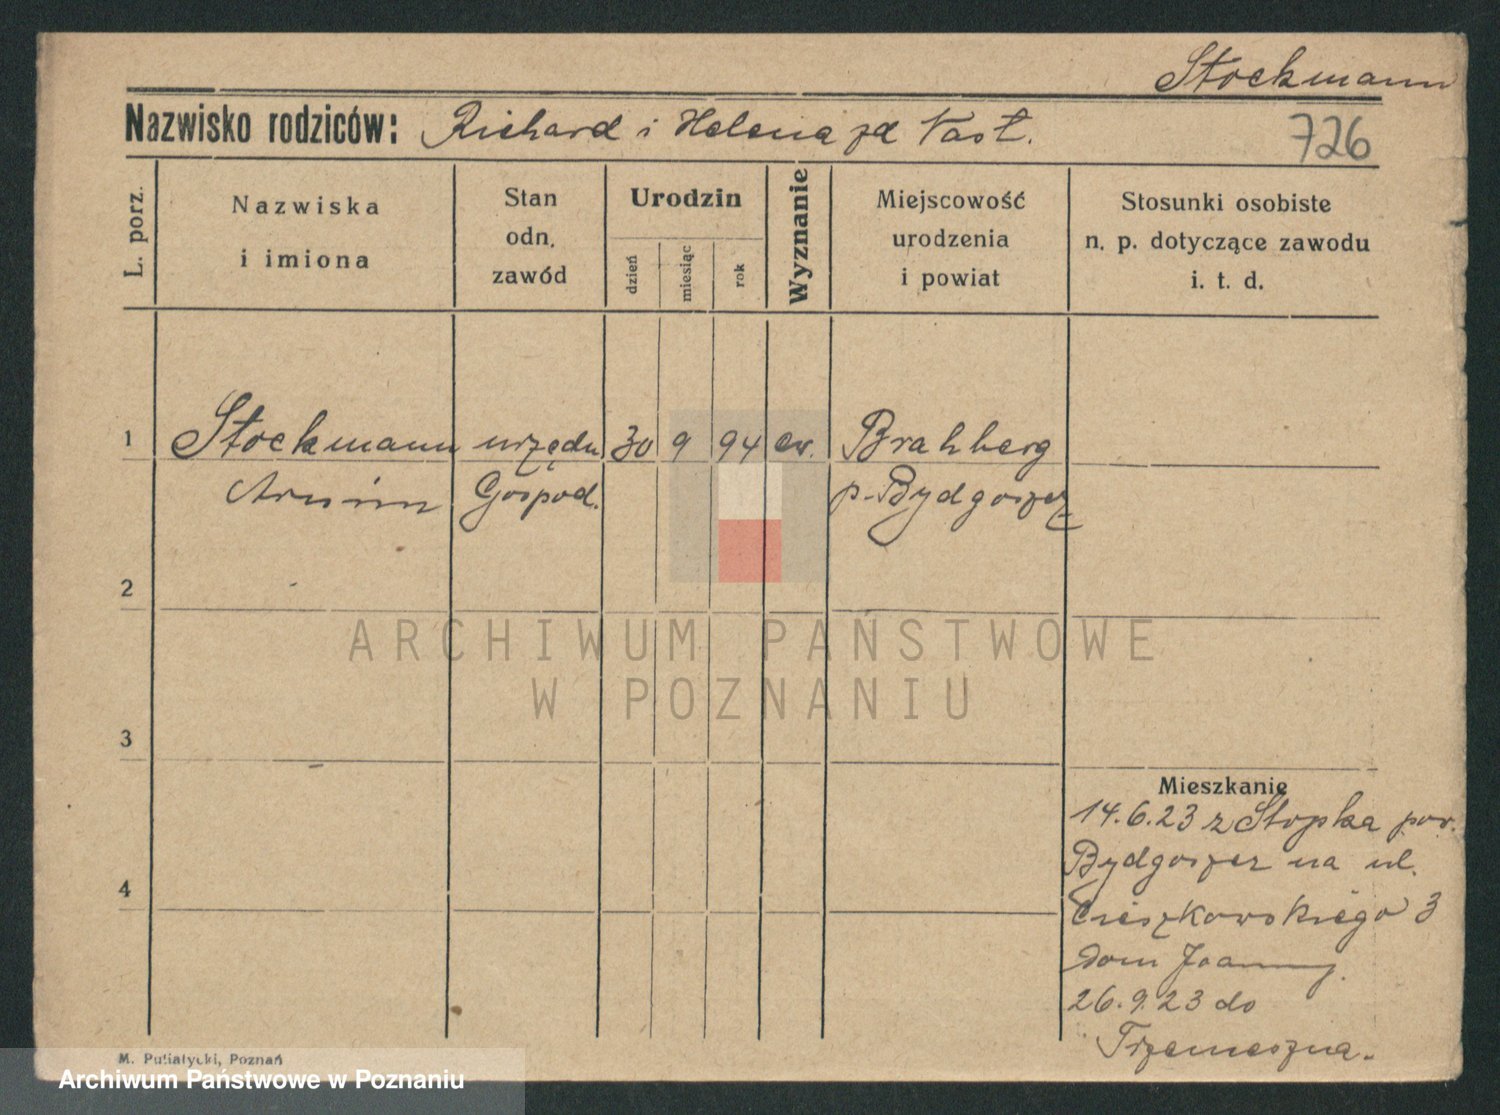 Stockmann
Nazwisko rodziców: Richard i Helena zd Vast.
726
L. porz.
Nazwiska
i imiona
Stan
odn.
zawód
Urodzin
dzień
miesiąc
rok
Wyznanie
Miejscowość
urodzenia
i powiat
Stosunki osobiste
n. p. dotyczące zawodu
i. t. d.
1 Stockmann urzędn 30 9 94 ew. Brahberg
Armin Gospod. p. Bydgoszcz
2
ARCHIWUM PAŃSTWOWE
W POZNANIU
3
Mieszkanie
14.6.23 z Stopka pow.
Bydgoszcz na ul.
4
Cieszkowskiego 3
dom Joanny.
26.9.23 do
Trzemeszna.
M. Putiatycki, Poznań
Archiwum Państwowe w Poznaniu